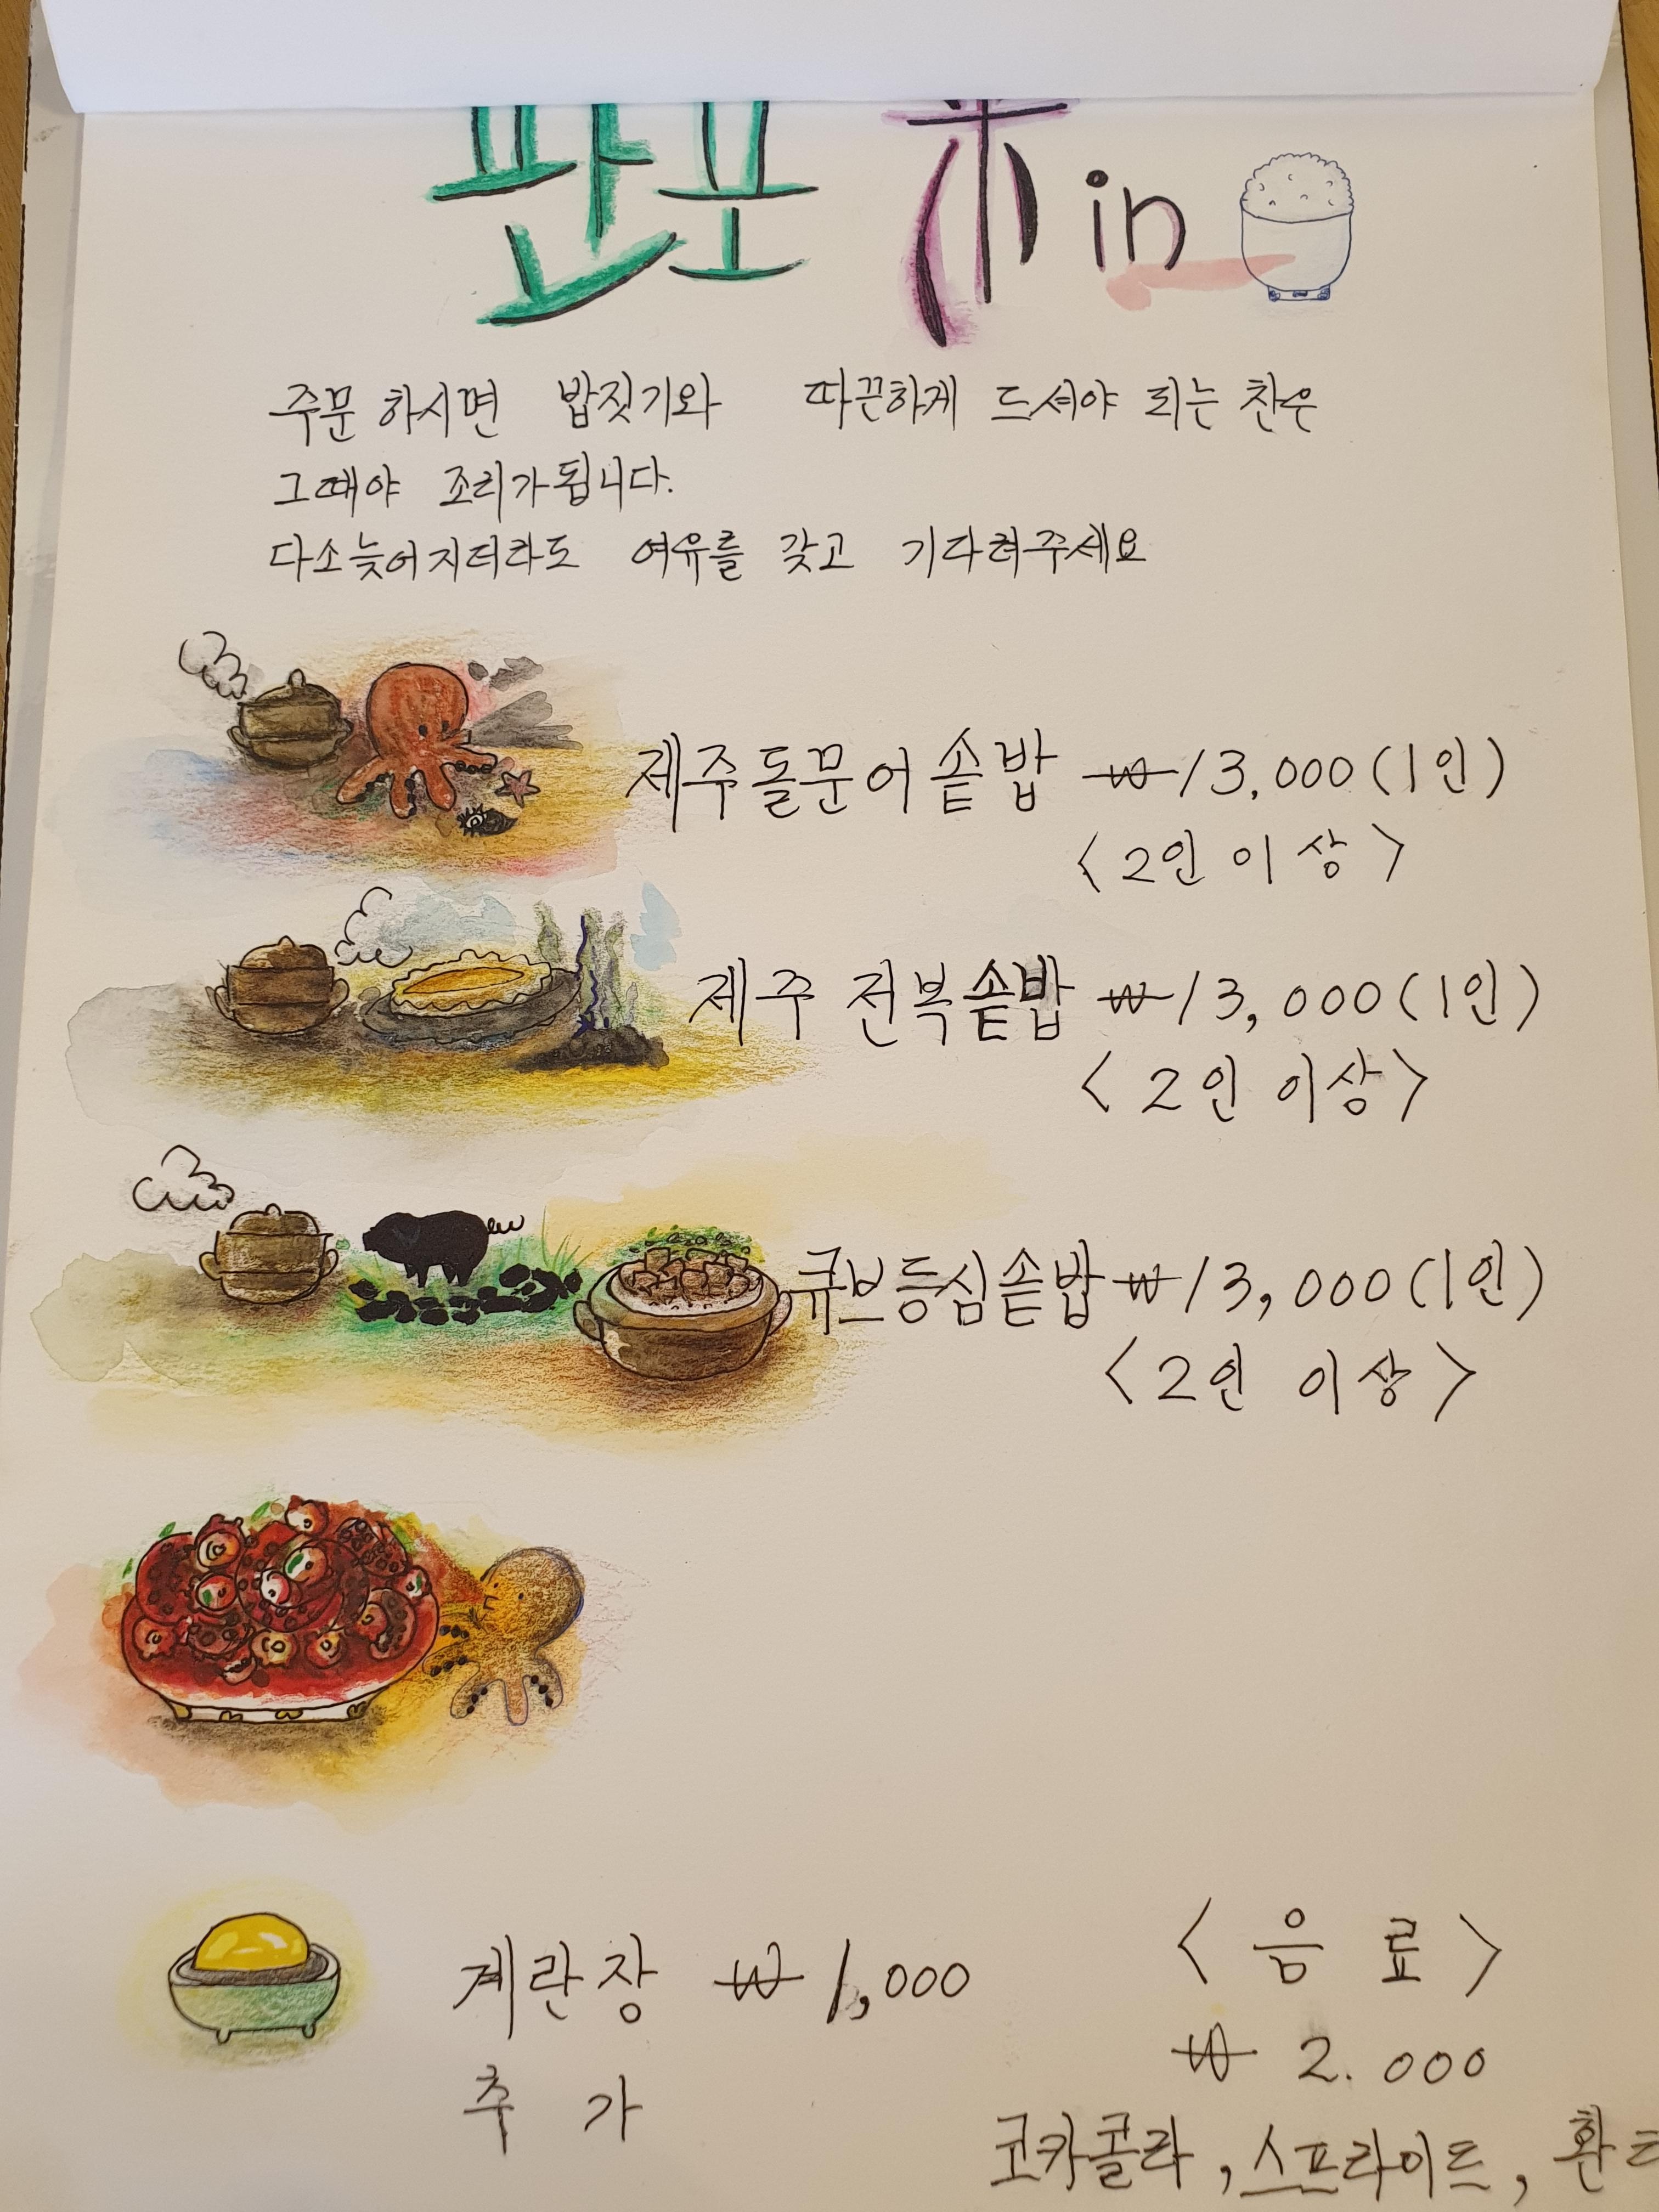 판포 米 in
주문 하시면 밥짓기와 따끈하게 드셔야 되는 찬은
그때야 조리가됩니다.
다소늦어지더라도 여유를 갖고 기다려주세요
제주돌문어솥밥 ₩13,000(1인)
<2인 이상>
제주 전복솥밥 ₩13,000(1인)
<2인 이상>
큐브등심솥밥 ₩13,000(1인)
<2인 이상>
계란장 ₩1,000
추가
<음료>
₩2.000
코카콜라, 스프라이트, 환타